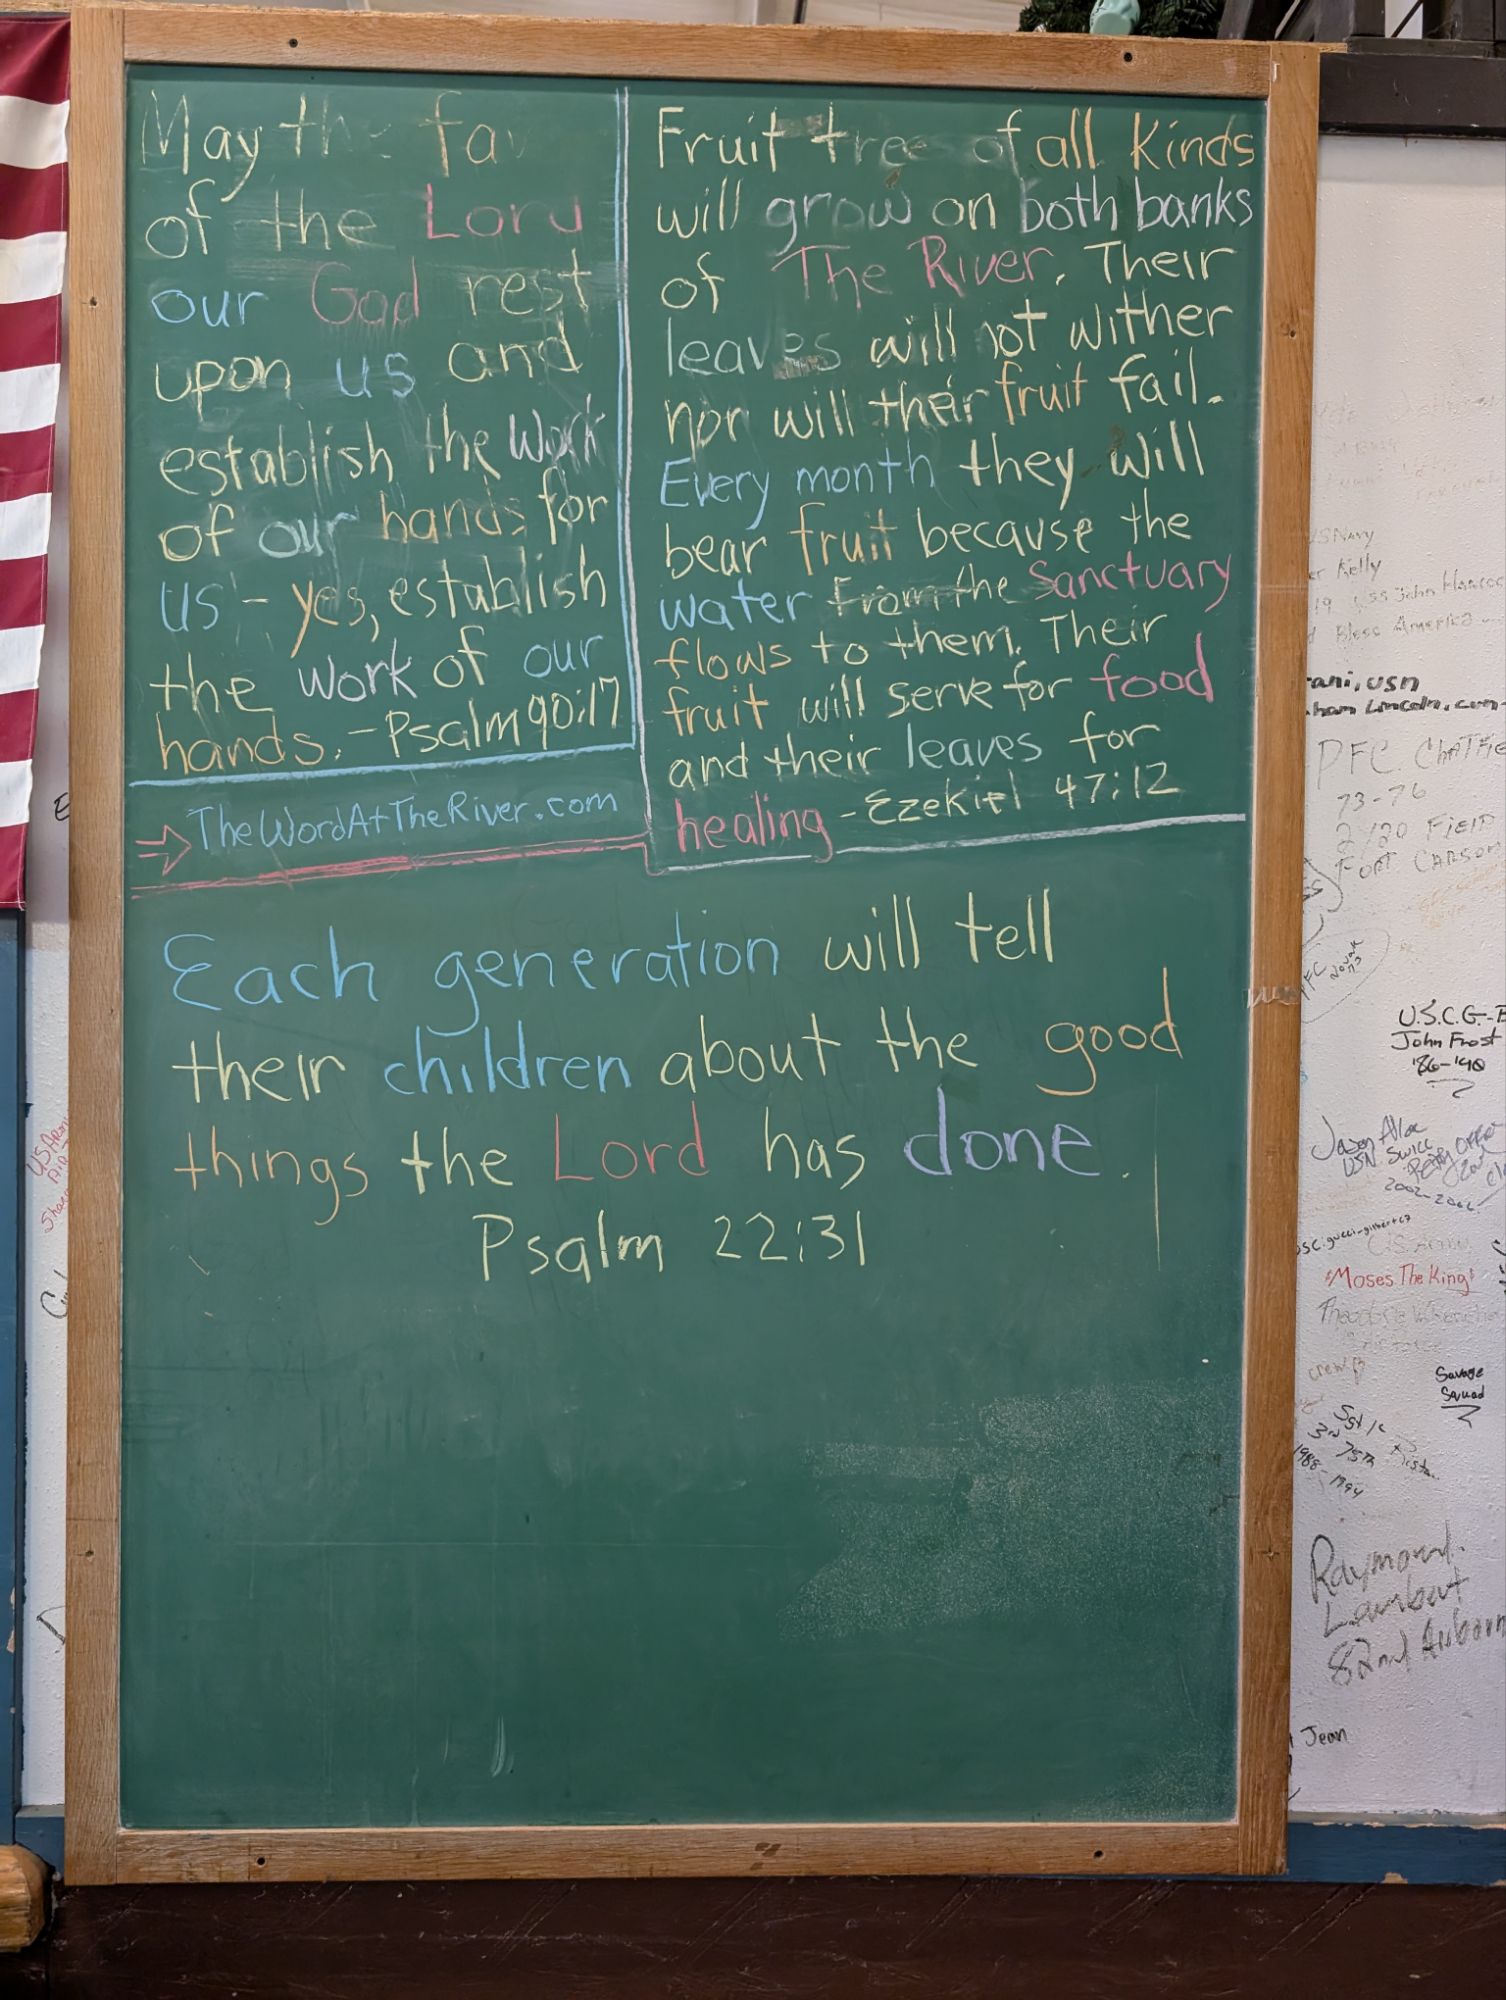 May the fa
of the Lord
our God rest
upon us and
establish the work
of our hands for
us - yes, establish
the work of our
hands. - Psalm 90:17
TheWordAtTheRiver.com
Fruit tree of all Kinds
will grow on both banks
of The River. Their
leaves will not wither
nor will their fruit fail.
Every month they will
bear fruit because the
water from the Sanctuary
flows to them. Their
fruit will serve for food
and their leaves for
healing - Ezekiel 47:12
Each generation will tell
their children about the good
things the Lord has done.
Psalm 22:31
USNavy
Kelly
USS John Hancoc
Bless America
ani, USN
ham Lincoln, cvn-
PFC ChaTFie
73-76
2/20 FIElD
FORT CARSON
PFC
U.S.C.G.-
John Frost
'86-'90
USN
2002-2006
Moses The King
Savage
Squad
3rd 75th
1988-1994
Raymond
Lambert
82nd Airborn
Jean
US Army